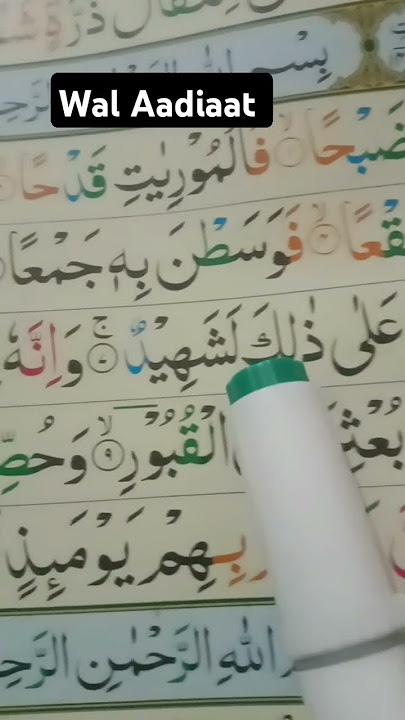 مِثْقَالَ ذَرَّةٍ
بِسْمِ اللهِ
Wal Aadiaat
ضَبْحًا ۙ﴿۱﴾ فَالْمُوْرِيٰتِ قَدْحًا
قْعًا ۙ فَوَسَطْنَ بِهٖ جَمْعًا
عَلٰى ذٰلِكَ لَشَهِيْدٌ ۚ﴿۷﴾ وَاِنَّهٗ
بُعْثِ الْقُبُوْرِ ۙ﴿۹﴾ وَحُصِّ
بِهِمْ يَوْمَئِذٍ
اللهِ الرَّحْمٰنِ الرَّحِ